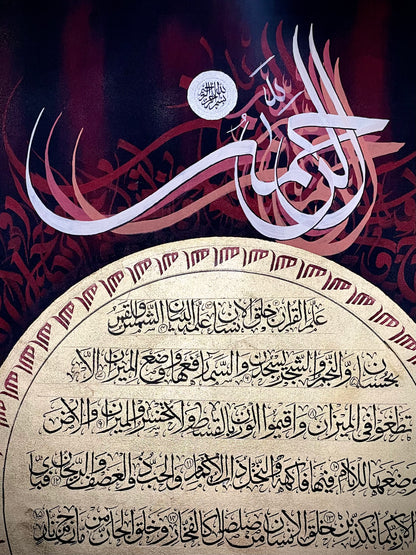 الرحمن
بسم الله الرحمن الرحيم
علم القرآن خلق الإنسان علمه البيان الشمس والقمر
بحسبان والنجم والشجر يسجدان والسماء رفعها ووضع الميزان ألا
تطغوا في الميزان وأقيموا الوزن بالقسط ولا تخسروا الميزان والأرض
وضعها للأنام فيها فاكهة والنخل ذات الأكمام والحب ذو العصف والريحان فبأي
آلاء ربكما تكذبان خلق الإنسان من صلصال كالفخار وخلق الجان من مارج من نار